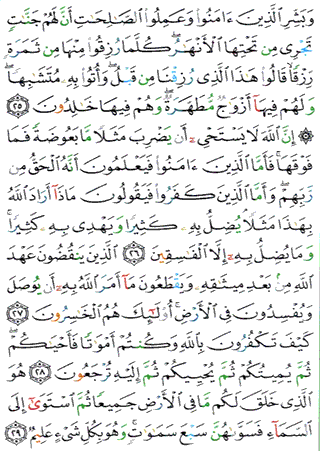 وَبَشِّرِ الَّذِينَ ءَامَنُوا وَعَمِلُوا الصَّالِحَاتِ أَنَّ لَهُمْ جَنَّاتٍ
تَجْرِى مِن تَحْتِهَا الْأَنْهَارُ كُلَّمَا رُزِقُوا مِنْهَا مِن ثَمَرَةٍ
رِّزْقًا قَالُوا هَٰذَا الَّذِى رُزِقْنَا مِن قَبْلُ وَأُتُوا بِهِ مُتَشَابِهًا
وَلَهُمْ فِيهَا أَزْوَاجٌ مُّطَهَّرَةٌ وَهُمْ فِيهَا خَالِدُونَ ٢٥
إِنَّ اللَّهَ لَا يَسْتَحْىِ أَن يَضْرِبَ مَثَلًا مَّا بَعُوضَةً فَمَا
فَوْقَهَا فَأَمَّا الَّذِينَ ءَامَنُوا فَيَعْلَمُونَ أَنَّهُ الْحَقُّ مِن
رَّبِّهِمْ وَأَمَّا الَّذِينَ كَفَرُوا فَيَقُولُونَ مَاذَا أَرَادَ اللَّهُ
بِهَٰذَا مَثَلًا يُضِلُّ بِهِ كَثِيرًا وَيَهْدِى بِهِ كَثِيرًا
وَمَا يُضِلُّ بِهِ إِلَّا الْفَاسِقِينَ ٢٦ الَّذِينَ يَنقُضُونَ عَهْدَ
اللَّهِ مِن بَعْدِ مِيثَاقِهِ وَيَقْطَعُونَ مَا أَمَرَ اللَّهُ بِهِ أَن يُوصَلَ
وَيُفْسِدُونَ فِى الْأَرْضِ أُولَٰئِكَ هُمُ الْخَاسِرُونَ ٢٧
كَيْفَ تَكْفُرُونَ بِاللَّهِ وَكُنتُمْ أَمْوَاتًا فَأَحْيَاكُمْ
ثُمَّ يُمِيتُكُمْ ثُمَّ يُحْيِيكُمْ ثُمَّ إِلَيْهِ تُرْجَعُونَ ٢٨ هُوَ
الَّذِى خَلَقَ لَكُم مَّا فِى الْأَرْضِ جَمِيعًا ثُمَّ اسْتَوَىٰ إِلَى
السَّمَاءِ فَسَوَّاهُنَّ سَبْعَ سَمَاوَاتٍ وَهُوَ بِكُلِّ شَىْءٍ عَلِيمٌ ٢٩